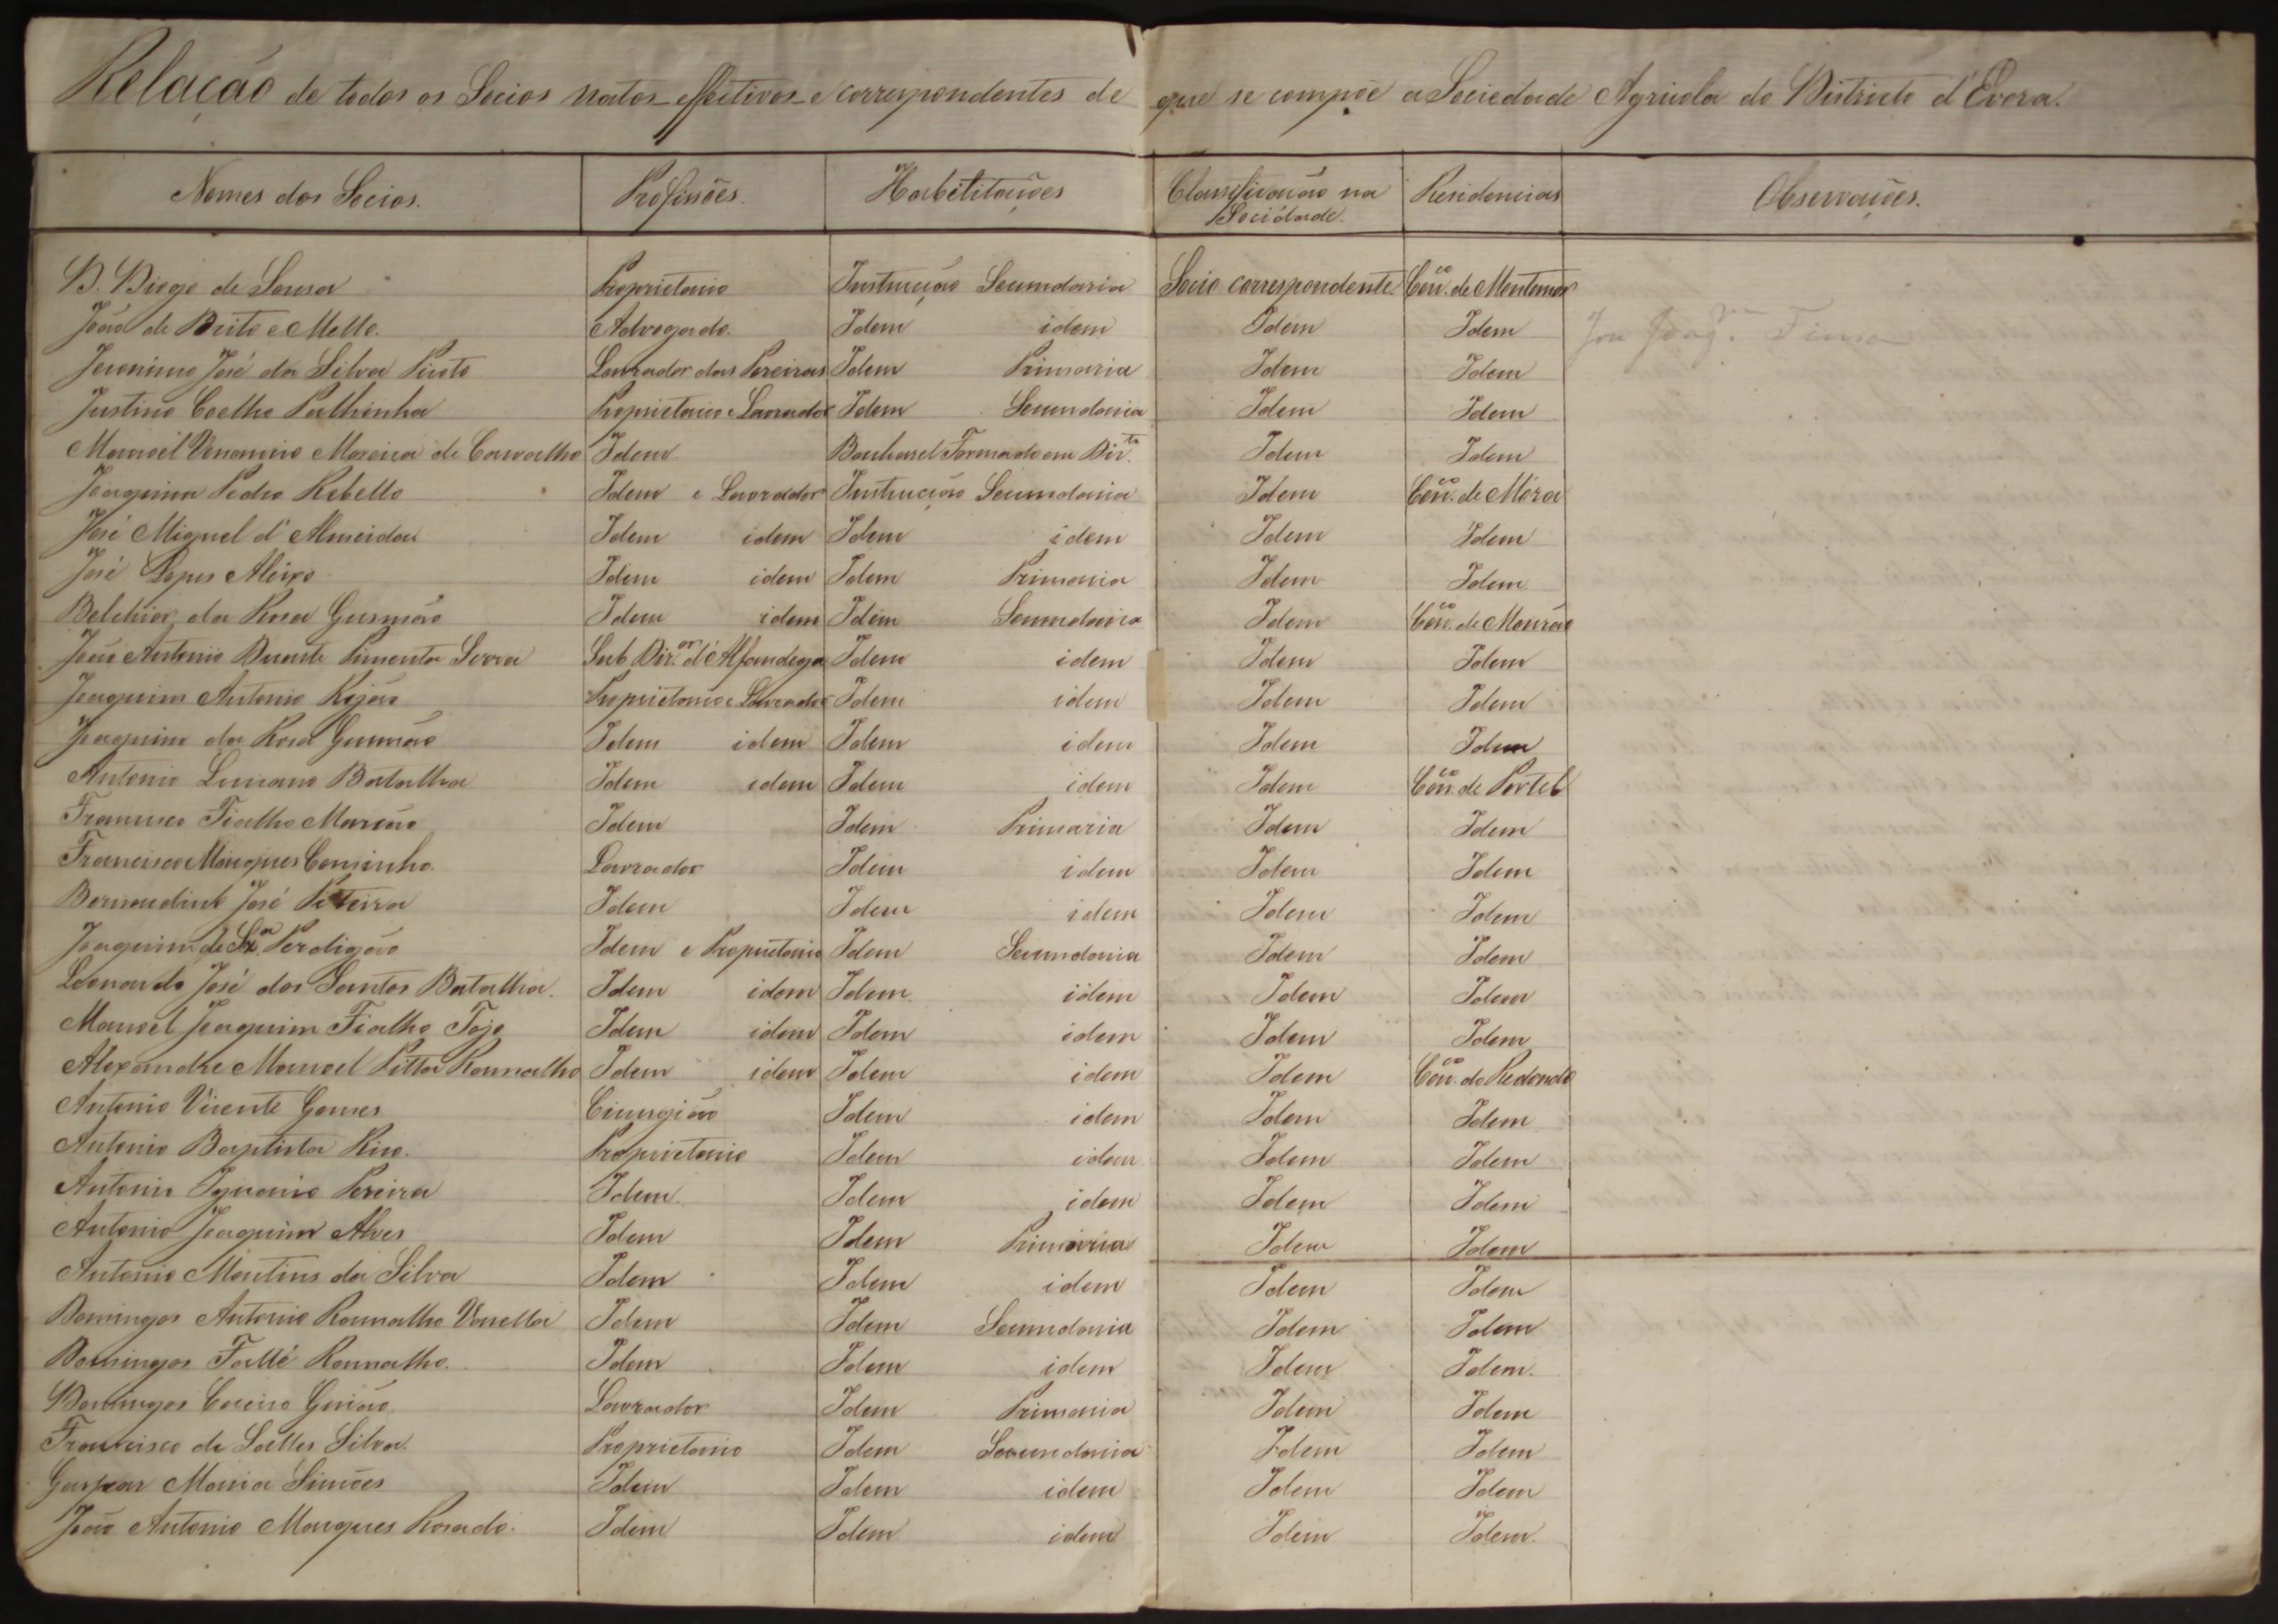 Relação de todos os Socios natos effectivos e correspondentes de que se compõe a Sociedade Agricola do Districto d'Evora.
Nomes dos Socios. Profissões. Habelitações Classificação na Sociedade. Residencias Observações.
D. Diogo de Sousa Proprietario Instrucção Secundaria Socio correspondente Cõn.co de Montemor
João de Brito e Mello. Advogado. Idem idem Idem Idem
Jeronimo José da Silva Lavrador das Pereiras Idem Primaria Idem Idem
Justino Coelho Palhinha Proprietario e Lavrador Idem Secundaria Idem Idem
Manoel Venancio Moreira de Carvalho Idem Bacharel Formado em Dir.to Idem Idem
Joaquim Pedro Rebello Idem e Lavrador Instrucção Secundaria Idem Cõn.co de Móra
José Miguel d'Almeida Idem idem Idem idem Idem Idem
José Lopes Aleixo Idem idem Idem Primaria Idem Idem
Belchior da Rosa Gusmão Idem idem Idem Secundaria Idem Cõn.co de Mourão
João Antonio Duarte Pimenta Serra Sub Dir.or d'Alfandega Idem idem Idem Idem
Joaquim Antonio Rojão Proprietario e Lavrador Idem idem Idem Idem
Joaquim da Rosa Gusmão Idem idem Idem idem Idem Idem
Antonio Luciano Batalha Idem idem Idem idem Idem Cõn.co de Portel
Francisco Fialho Marcão Idem Idem Primaria Idem Idem
Francisco Marques Caminho. Lavrador Idem idem Idem Idem
Bernardino José Piteira Idem Idem idem Idem Idem
Joaquim de Perdigão Idem e Proprietario Idem Secundaria Idem Idem
Leonardo José dos Santos Batalha. Idem idem Idem idem Idem Idem
Manoel Joaquim Fialho Tojo Idem idem Idem idem Idem Idem
Alexandre Manoel Pitta Ramalho Idem idem Idem idem Idem Cõn.co do Redondo
Antonio Vicente Gomes Cirurgião Idem idem Idem Idem
Antonio Baptista Rico. Proprietario Idem idem Idem Idem
Antonio Ignacio Pereira Idem Idem idem Idem Idem
Antonio Joaquim Alves Idem Idem Primaria Idem Idem
Antonio Martins da Silva Idem Idem idem Idem Idem
Domingos Antonio Ramalho Varella Idem Idem Secundaria Idem Idem
Domingos Fallé Ramalho. Idem Idem idem Idem Idem.
Domingos Lavrador Idem Primaria Idem Idem
Francisco de Salles Silva. Proprietario Idem Secundaria Idem Idem
Gaspar Maria Simões Idem Idem idem Idem Idem
João Antonio Marques Rosado. Idem Idem idem Idem Idem.